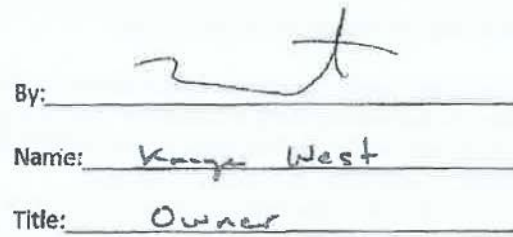 By:
Name: Kanye West
Title: Owner